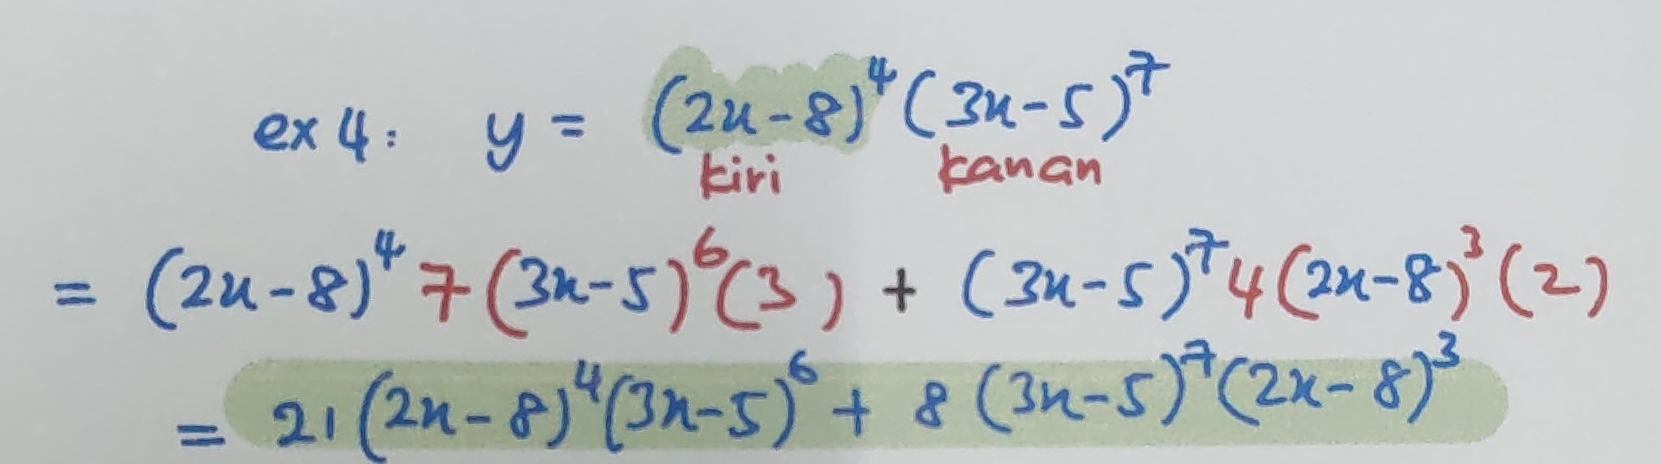 ex 4: y = (2x-8)⁴ (3x-5)⁷
kiri kanan
= (2x-8)⁴ 7(3x-5)⁶(3) + (3x-5)⁷ 4(2x-8)³(2)
= 21(2x-8)⁴(3x-5)⁶ + 8(3x-5)⁷(2x-8)³